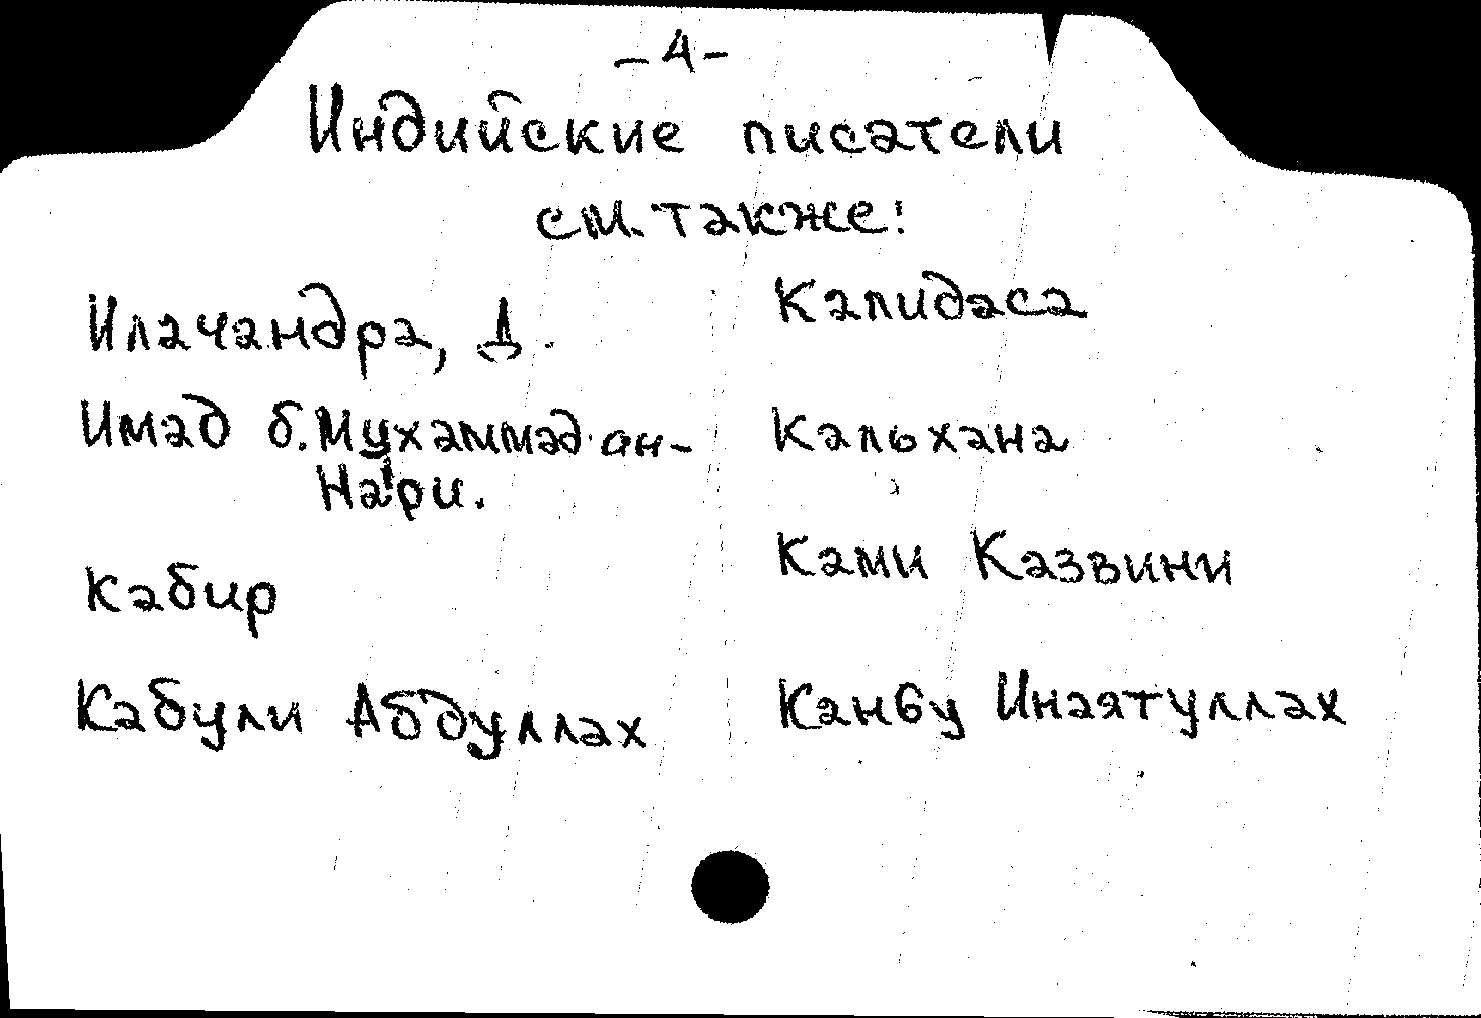 - 4 -
Индийские писатели
см. также:
Илачандра, Д.
Имад б. Мухаммад ан-
На'ри.
Кабир
Кабули Абдуллах
Калидаса
Кальхана
Ками Казвини
Канбу Инаятуллах